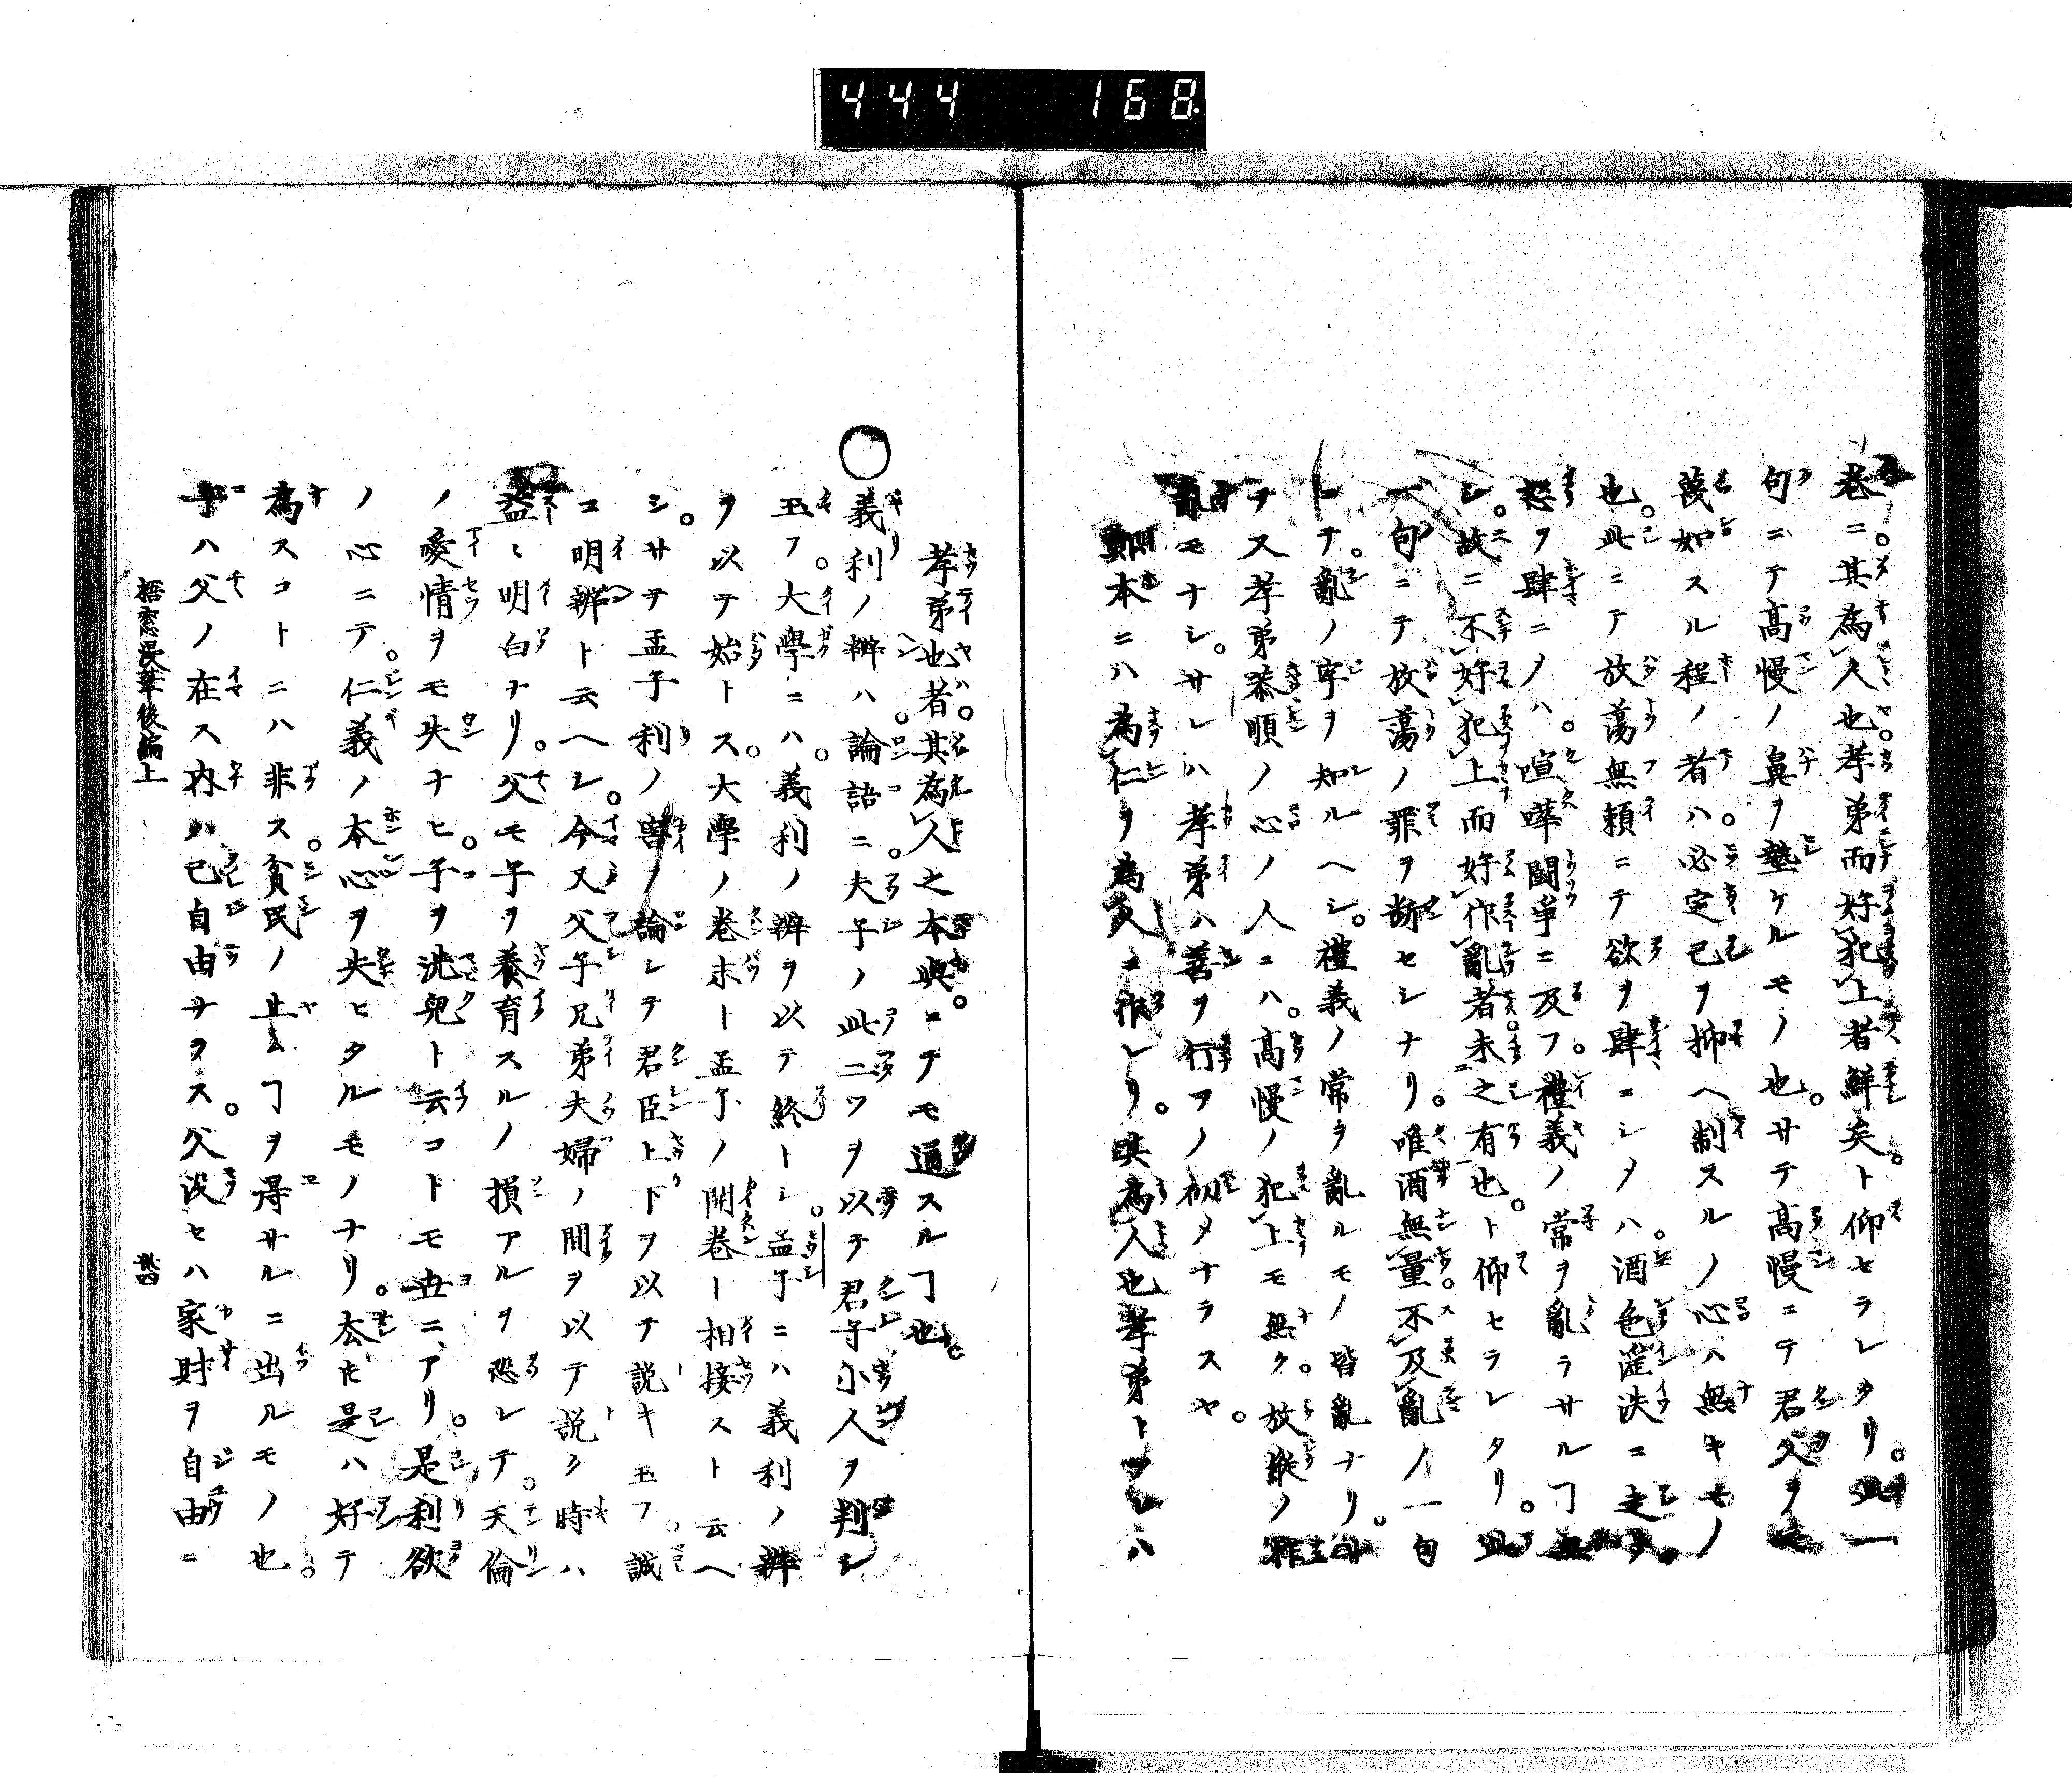 444 168
巻ニ。其為人也。孝弟而好犯上者鮮矣。ト仰セラレタリ。此一
句ニテ高慢ノ鼻ヲ
モノ也。サテ高慢ニテ君父ヲ
蔑如スル程ノ者ハ。必定己ヲ抑ヘ制スルノ心ハ無キモノ
也。此ニテ放蕩無頼ニテ欲ヲ肆ニシメハ。酒色淫泆ニ走リ。
怒ヲ肆ニメハ。喧嘩闘爭ニ及フ。禮義ノ常ヲ亂ラサルヿ無
シ。故ニ不好犯上而好作亂者未之有也。ト仰セラレタリ。此
一句ニテ放蕩ノ罪ヲ断セシナリ。唯酒無量不及亂ノ一句
ニテ。亂ノ字ヲ知ルヘシ。禮義ノ常ヲ亂ルモノ皆亂ナリ。
テ又孝弟恭順ノ心ノ人ニハ。高慢ノ犯上モ無ク。放縦ノ作
亂モナシ。サレハ孝弟ハ善ヲ行フノ初メナラスヤ。
本ニハ為仁ヲ為人ニ作レリ。其為人也孝弟トアレハ
孝弟也者。其為人之本與。ニテモ通スルヿ也。
〇義利ノ辨ハ。論語ニ。夫子ノ此二ツヲ以テ君子小人ヲ判シ
玉フ。大學ニハ。義利ノ辨ヲ以テ終トシ。孟子ニハ義利ノ辨
ヲ以テ始トス。大學ノ巻末ト孟子ノ開巻ト相接スト云ヘ
シ。サテ孟子利ノ害ノ論シテ君臣上下ヲ以テ説キ玉フ。誠
ニ明辨ト云ヘシ。今又父子兄弟夫婦ノ間ヲ以テ説ク時ハ
益ミ明白ナリ。父モ子ヲ養育スルノ損アルヲ恐レテ。天倫
ノ愛情ヲモ失ナヒ。子ヲ洗兒ト云コトモ世ニアリ。是利欲
ノ心ニテ。仁義ノ本心ヲ失ヒタルモノナリ。
是ハ好テ
為スコトニハ非ス。貧民ノ止ムヿヲ得サルニ出ルモノ也。
子ハ父ノ在ス内ハ己自由ナラス。父没セハ家財ヲ自由ニ
梧窓漫筆後編上 卌四